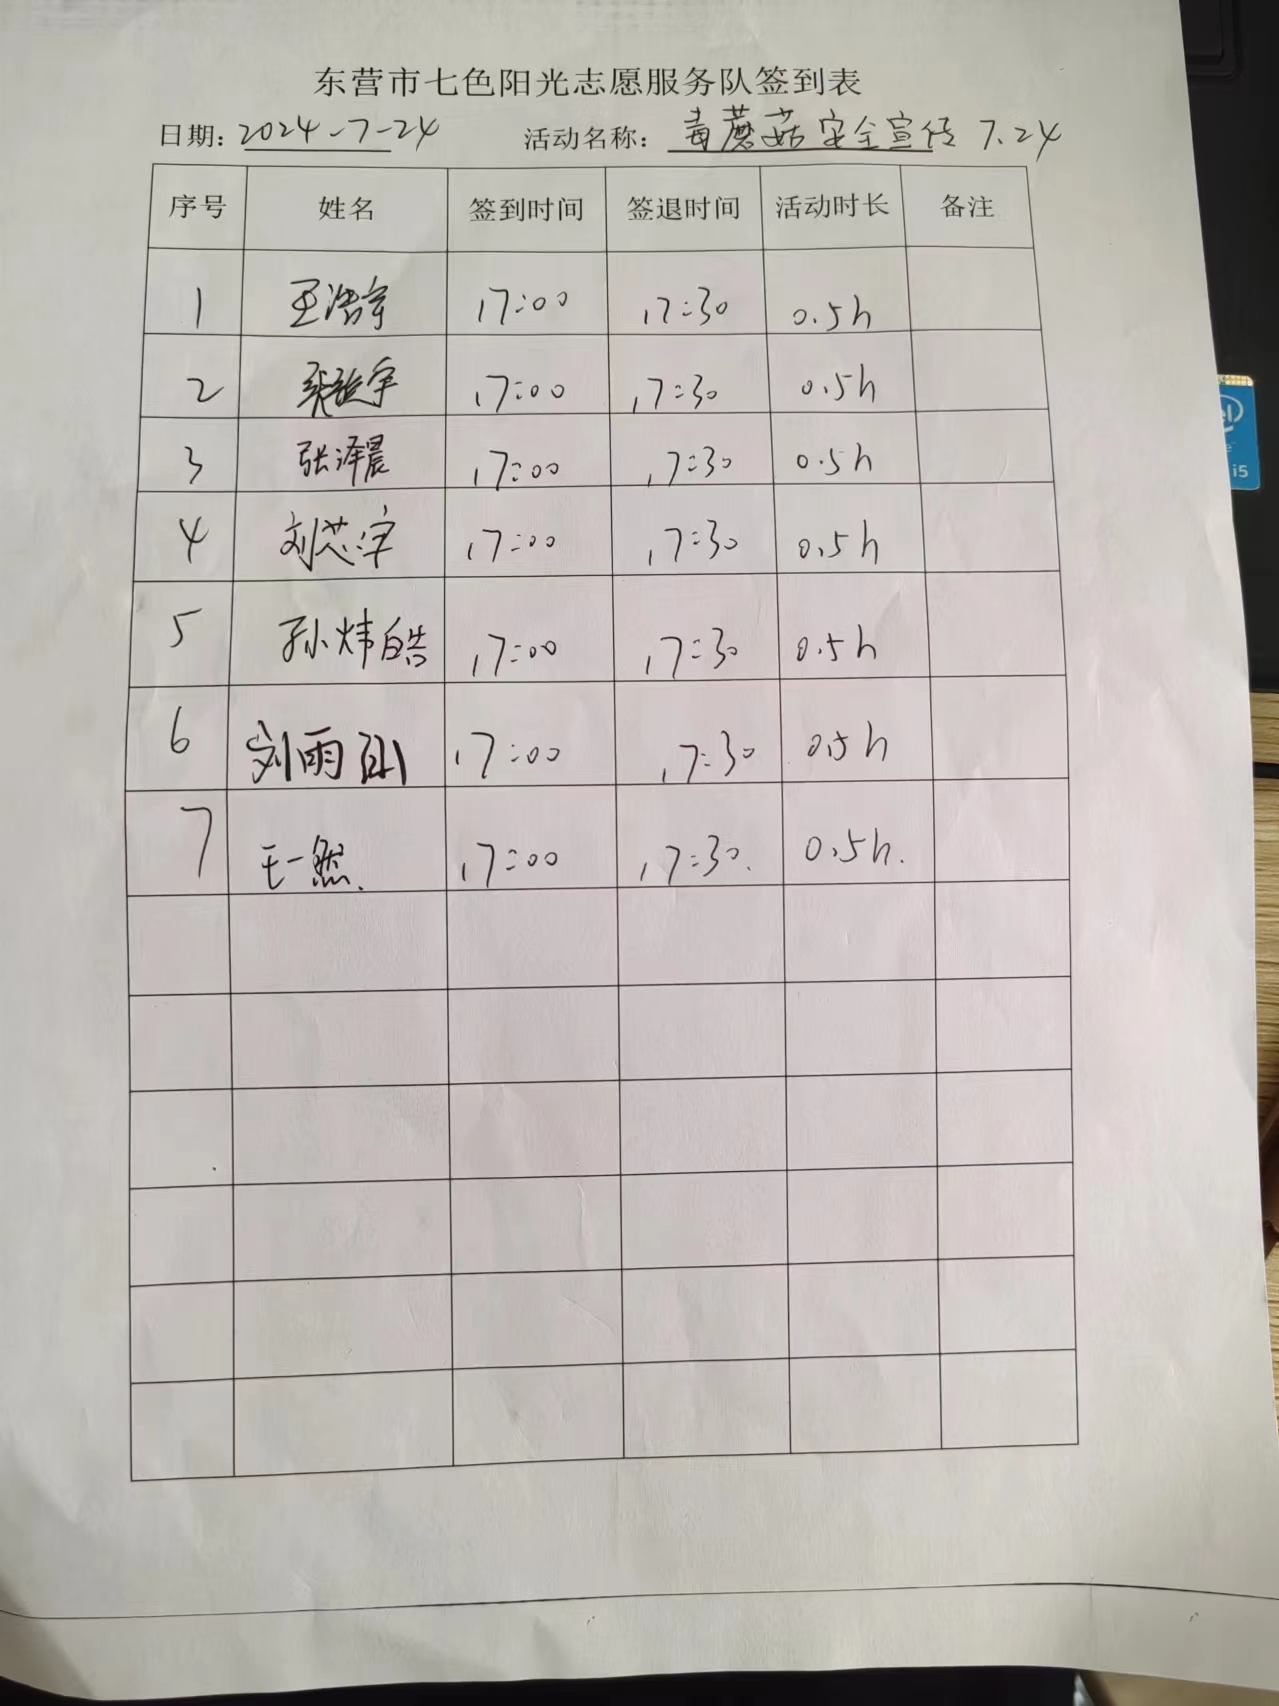 东营市七色阳光志愿服务队签到表
日期: 2024-7-24 活动名称: 毒蘑菇安全宣传 7.24
序号 姓名 签到时间 签退时间 活动时长 备注
1 王浩宇 17:00 17:30 0.5h
2 17:00 17:30 0.5h
3 张泽晨 17:00 17:30 0.5h
4 刘芯宇 17:00 17:30 0.5h
5 孙炜皓 17:00 17:30 0.5h
6 刘雨 17:00 17:30 0.5h
7 王一然. 17:00 17:30. 0.5h.
i5